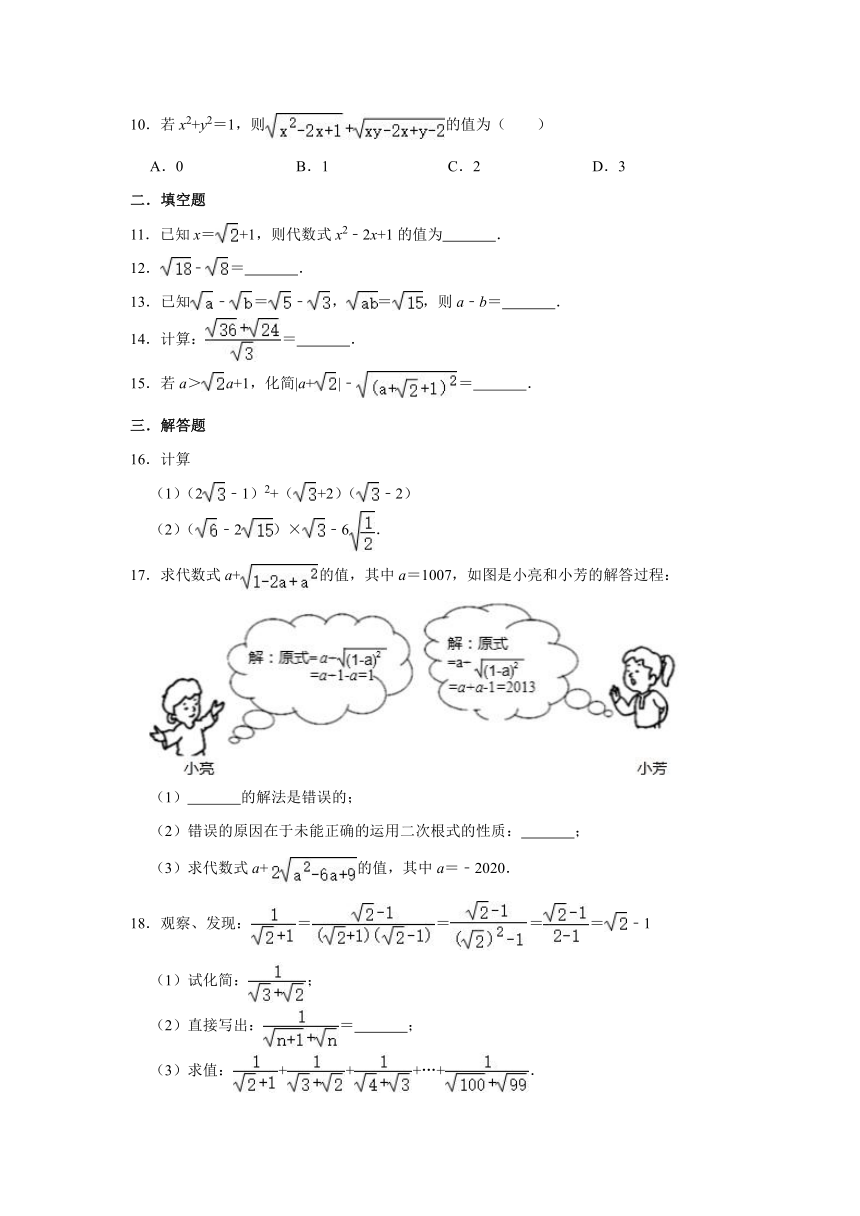 10．若 x²+y²＝1，则√(x²-2x+1)+√(xy-2x+y-2)的值为（　　）
A．0　B．1　C．2　D．3
二．填空题
11．已知 x＝√2+1，则代数式 x²﹣2x+1 的值为______．
12．√18﹣√8＝______．
13．已知√a﹣√b＝√5﹣√3，√ab＝√15，则 a﹣b＝______．
14．计算：(√36+√24)/√3＝______．
15．若 a＞√2a+1，化简|a+√2|﹣√((a+√2+1)²)＝______．
三．解答题
16．计算
（1）（2√3﹣1）²+（√3+2）（√3﹣2）
（2）（√6﹣2√15）×√3﹣6√(1/2)．
17．求代数式 a+√(1-2a+a²)的值，其中 a＝1007，如图是小亮和小芳的解答过程：
解：原式=a+√(1-a)²
=a+1-a=1
小亮
解：原式
=a+√(1-a)²
=a+a-1=2013
小芳
（1）______的解法是错误的；
（2）错误的原因在于未能正确的运用二次根式的性质：______；
（3）求代数式 a+2√(a²-6a+9)的值，其中 a＝﹣2020．
18．观察、发现：1/(√2+1)＝(√2-1)/((√2+1)(√2-1))＝(√2-1)/((√2)²-1)＝(√2-1)/(2-1)＝√2﹣1
（1）试化简：1/(√3+√2)；
（2）直接写出：1/(√(n+1)+√n)＝______；
（3）求值：1/(√2+1)+1/(√3+√2)+1/(√4+√3)+…+1/(√100+√99)．